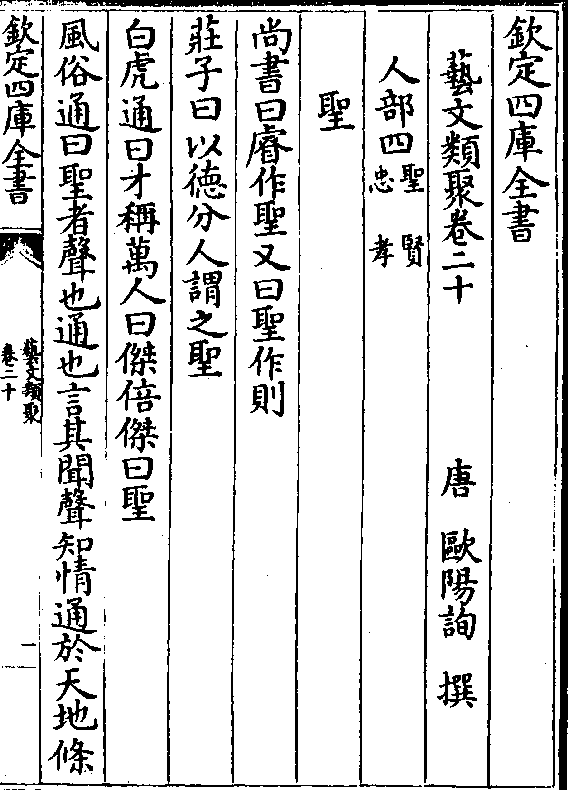 欽定四庫全書
藝文類聚卷二十
唐 歐陽詢 撰
人部四 聖 賢 忠 孝
聖
尚書曰睿作聖又曰聖作則
莊子曰以徳分人謂之聖
白虎通曰才稱萬人曰傑倍傑曰聖
風俗通曰聖者聲也通也言其聞聲知情通於天地條
欽定四庫全書
藝文類聚
卷二十
一